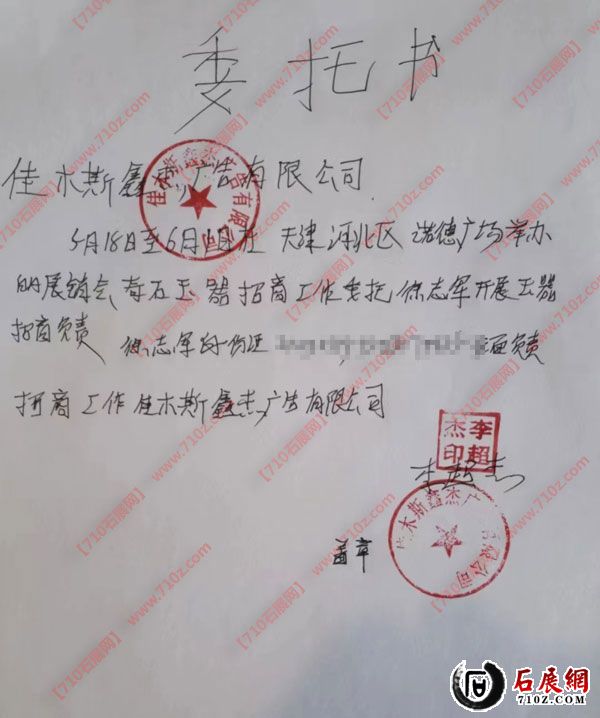 委托书
佳木斯鑫杰广告有限公司
5月18日至6月1日在 天津河北区 诺德广场举办
的展销会,奇石玉器招商工作委托,徐志军开展玉器
招商负责 徐志军身份证 负责
招商工作佳木斯鑫杰广告有限公司
李超杰印
李超杰
盖章
佳木斯鑫杰广告有限公司
佳木斯鑫杰广告有限公司
【710石展网】 www.710z.com
石展網
710Z.COM